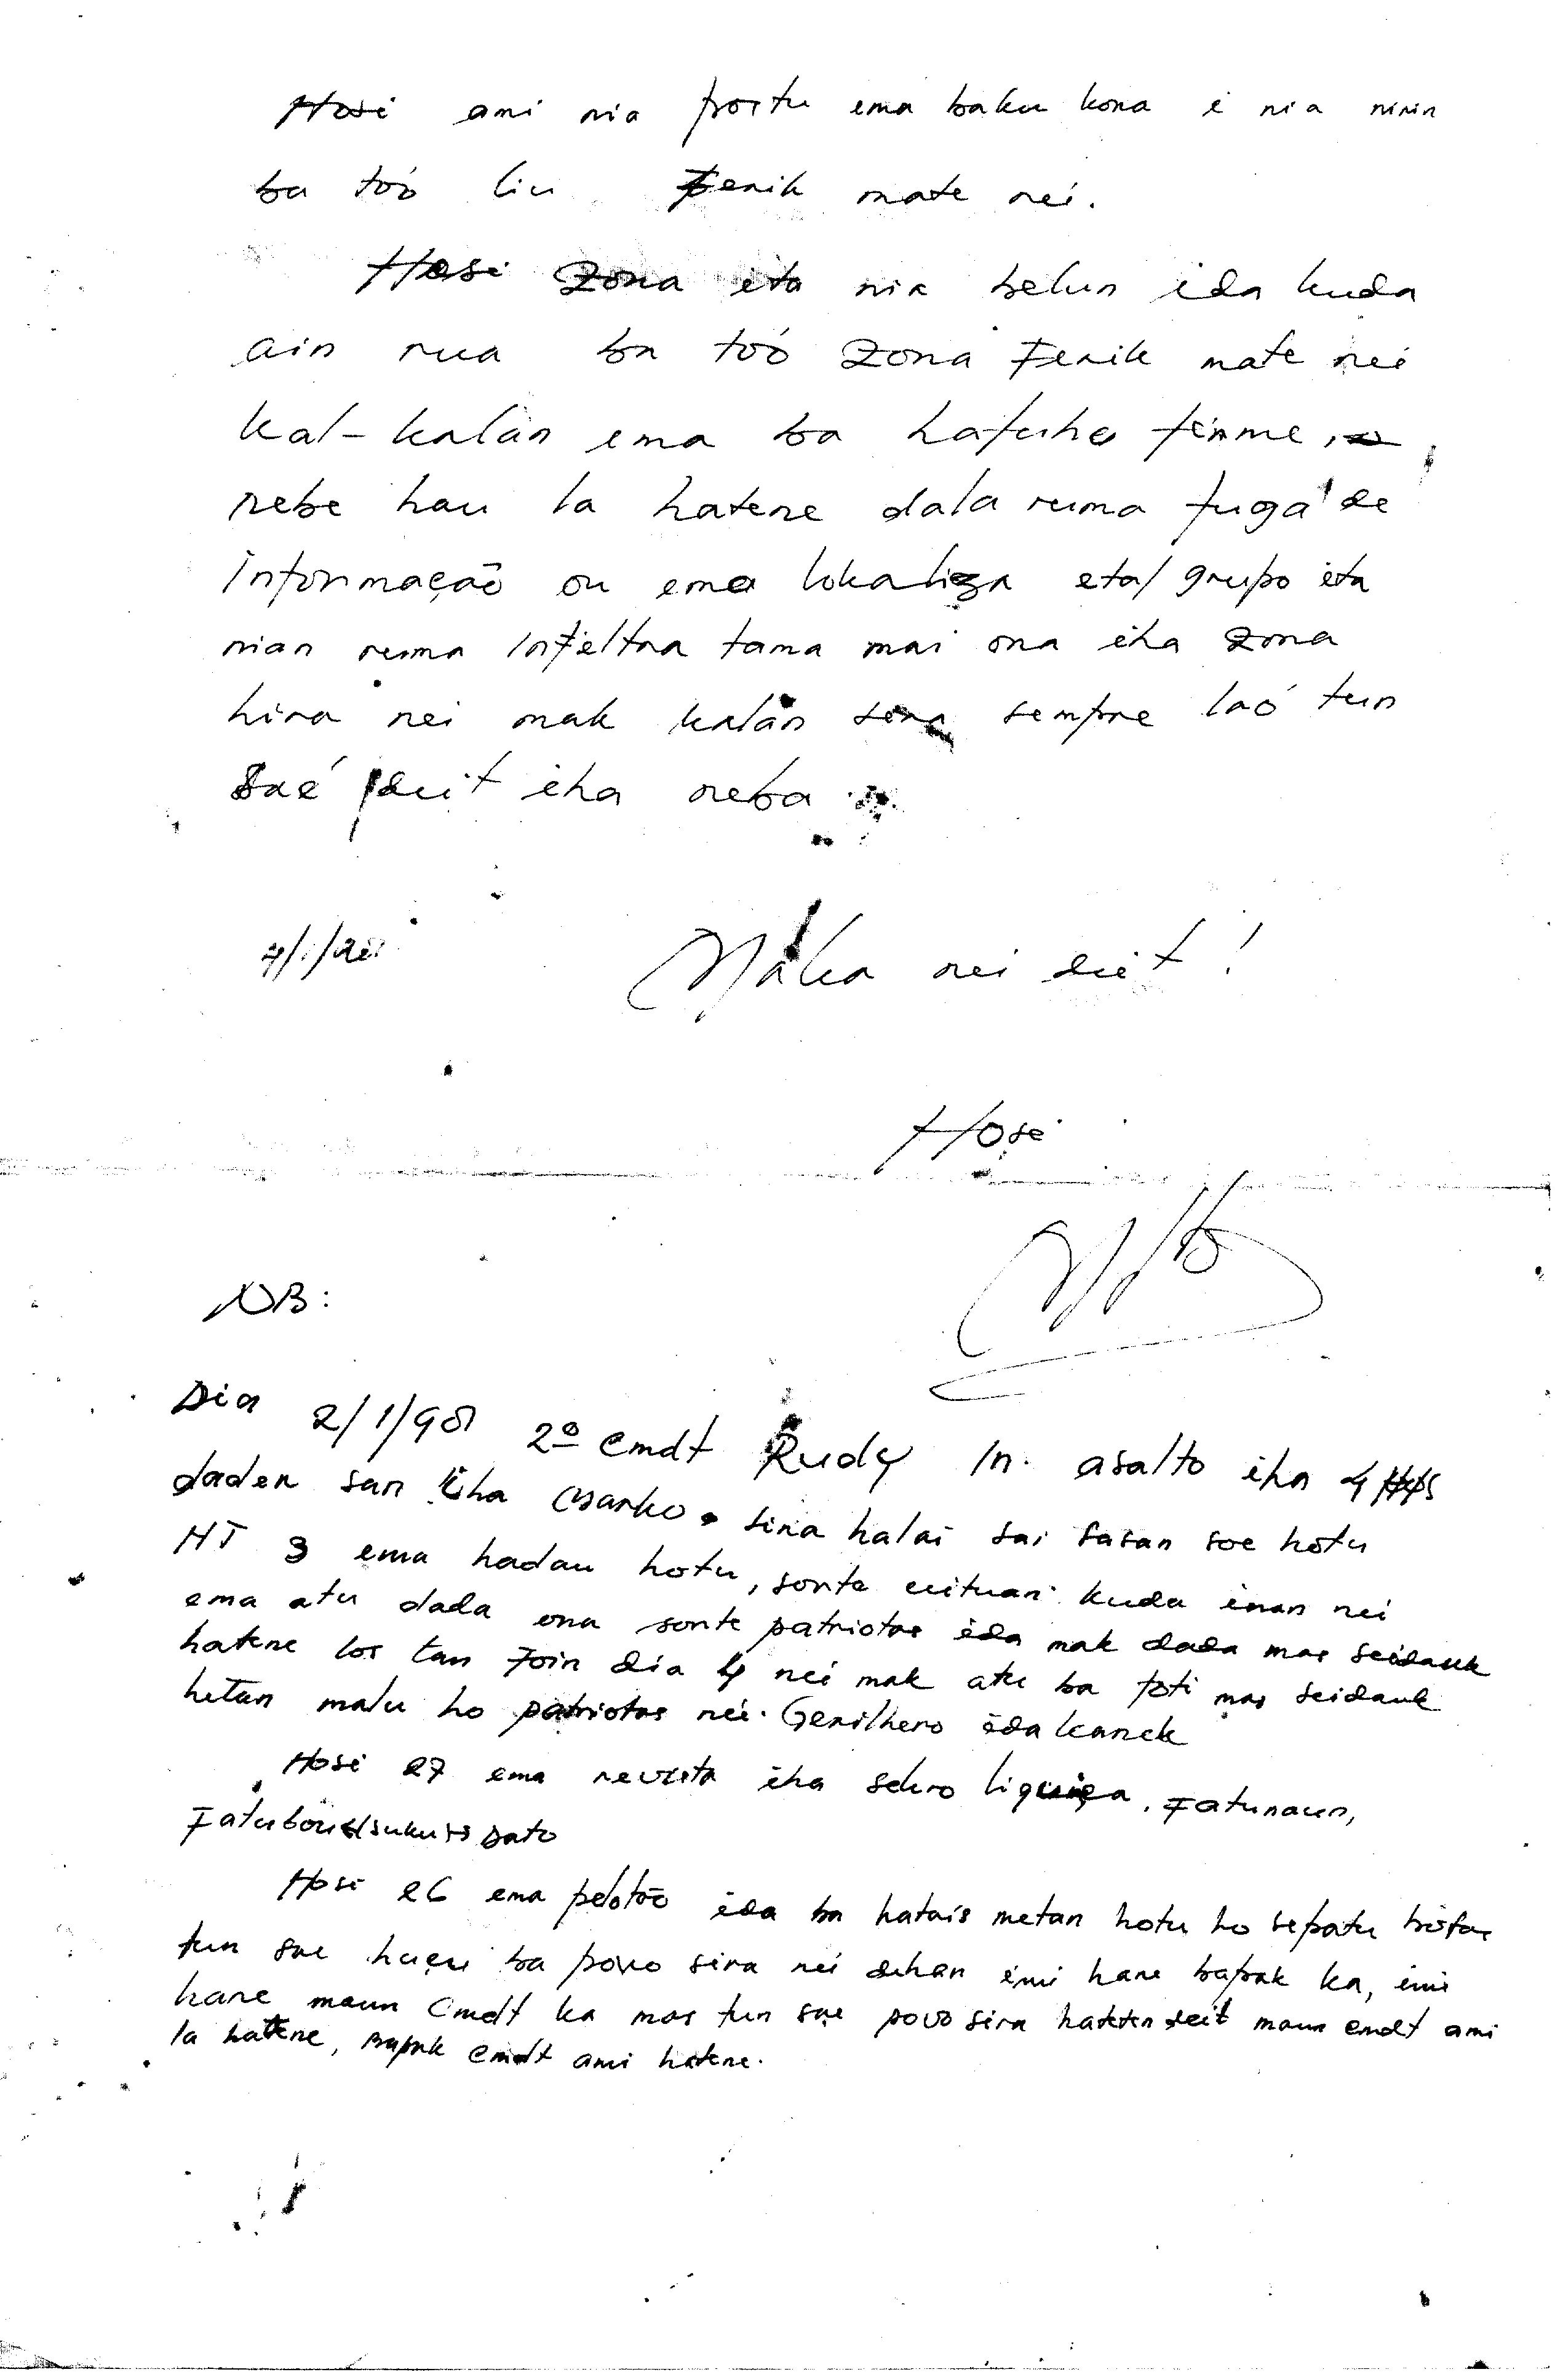 Hosi ami nia portu ema baku kona i nia ninin
ba toó liu Ferik mate nei.
Hosi Zona ita nia belun ida kuda
ain rua ba toó Zona Ferik mate nei
kal-kalan ema ba hafuhu firme,
nebe hau la hatene dala ruma fuga de
informação ou ema lokaliza eta/ grupo ita
nian ruma infeltra tama mai ona iha Zona
hira nei mak kalan sira sempre laó tun
Saé deit iha neba
Máka nei deit!
Hosi
NB:
Dia 2/1/98 2º Cmdt Rudy In. asalto iha 4
dader san iha Marko. sira halai sai sasan soe hotu
HT 3 ema hadau hotu, sorte uituan kuda inan nei
ema atu dada ona sorte patriotas ida mak dada mas seidauk
hatene los tan Foin dia 4 nei mak atu ba foti mas seidauk
hetan malu ho patriotas nei. Gerilhero ida kanek
Hosi 27 ema revista iha sekro liquiça, Fatunaun,
Fatubou suku Dato
Hosi 26 ema pelotão ida ba hatais metan hotu ho sepatu
tun sae husu ba povo sira nei dehan imi hare bapak ka, imi
hare maun Cmdt ka mas tun sae povo sira hatten deit maun cmdt ami
la hatene, Bapak Cmdt ami hatene.